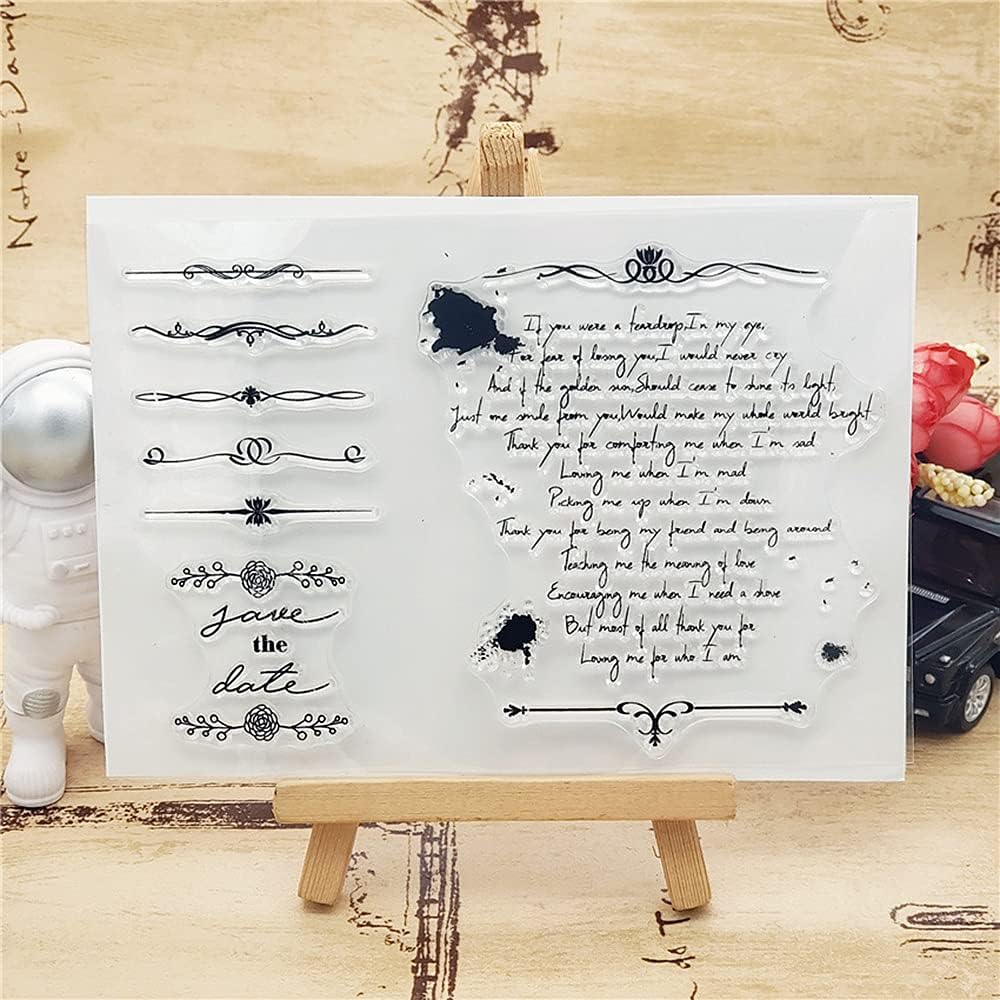 Notre-Dame
save
the
date
If you were a teardrop,In my eye,
For fear of losing you,I would never cry
And if the golden sun,Should cease to shine its light,
Just one smile from you,Would make my whole world bright
Thank you for comforting me when I'm sad
Loving me when I'm mad
Picking me up when I'm down
Thank you for being my friend and being around
Teaching me the meaning of love
Encouraging me when I need a shove
But most of all thank you for
Loving me for who I am